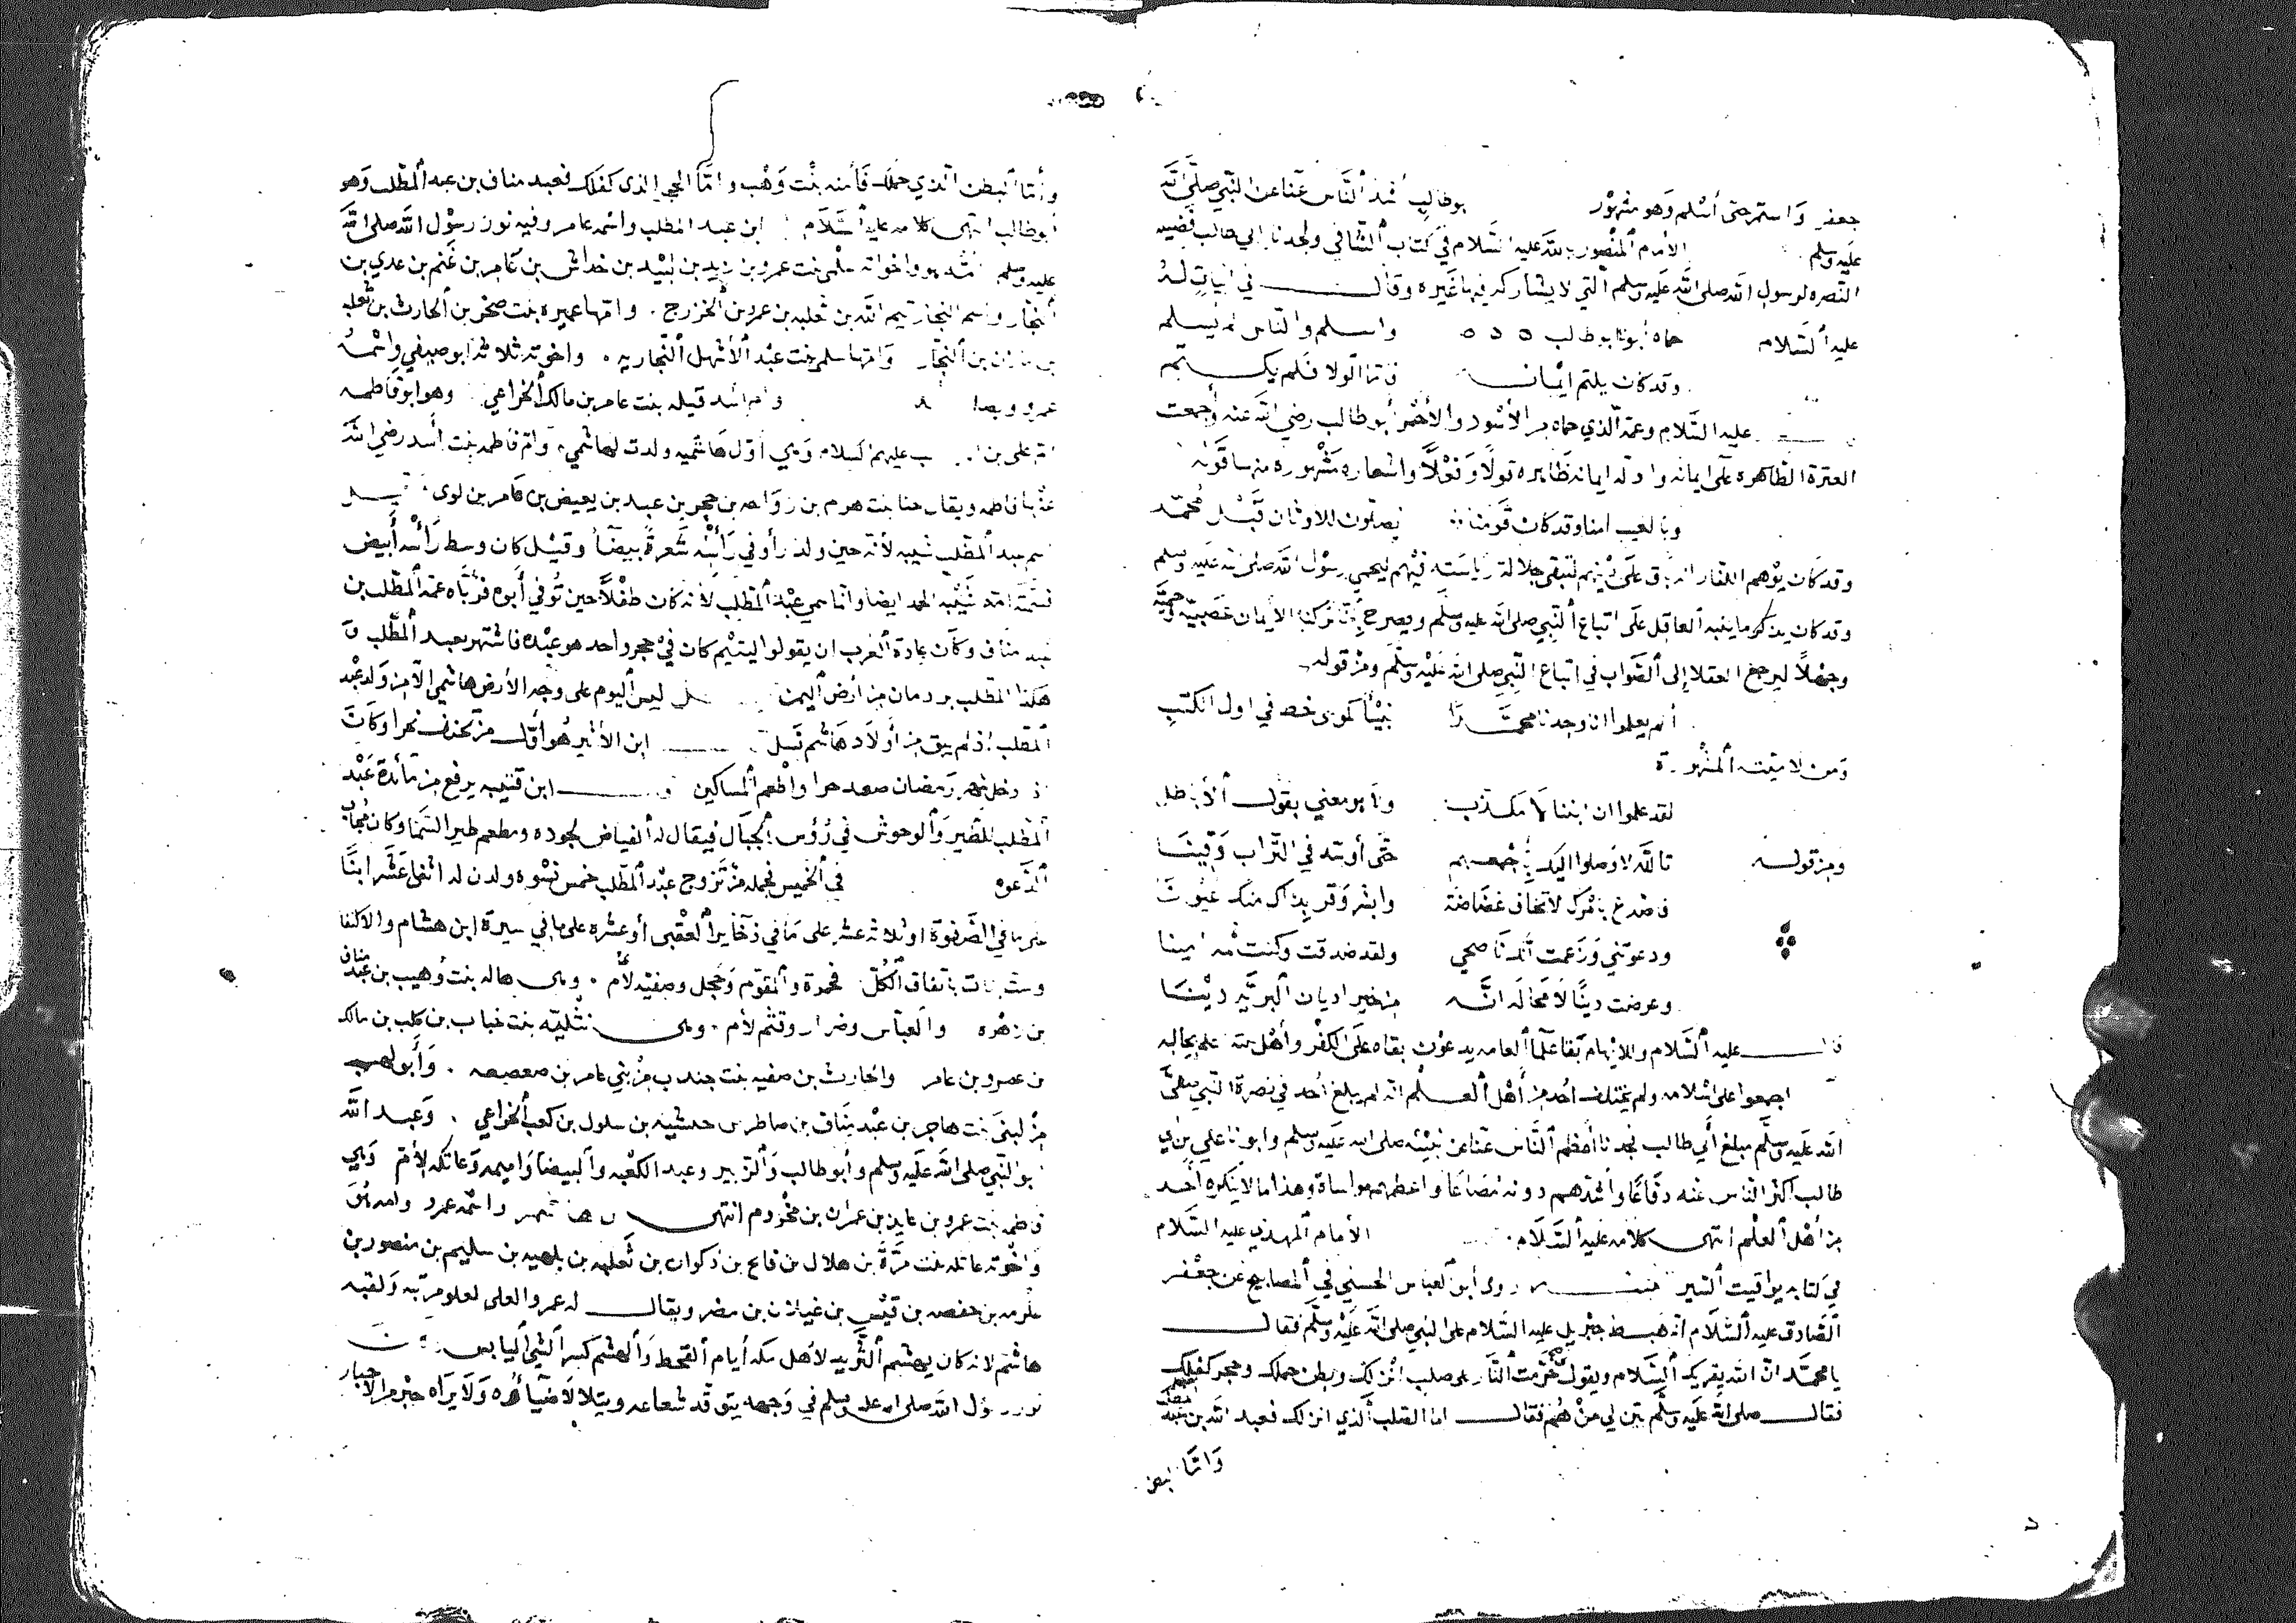 جعفر وَاستمر حتى أسْلم وَهو مشهوْر بوطالبٍ أشد ألنَّاس عنَّا عن النَّبي صلَّى الله
عليه وسلم الأمام ألمنْصور بالله عليه السَّلام في كتاب ألشَّافي ولجدنا ابي طالب فضيلة
النّصره لرسول الله صلى الله عَليه وَسلم ألتي لا يشاركه فيها غيره وقال في ابياتٍ لهُ
عليه ألسَّلام حماه أبونا ابو طالب واسلم والنَّاس لم تسلم
وقد كان يكتم ايْمانه فامّا الولا فلم يكتم
عليه السَّلام وعمّه ألذي حماه من الأسْود والأحمر أبو طالب رضي الله عنه وأجمعت
العترة الطَّاهره على ايمانه وادلة ايمانه ظاهره قولًا وَفعْلًا واشعاره مَشْهوره منها قَوله
وبالغيب امنا وقد كان قَومنا يصلّون للاوثان قَبْل مُحمّد
وقد كان يوْهم الكفار انه باق علَى دينهم لتبقى جلالة رياسَته فيْهم ليحمي رسوْل الله صلى الله عَليه وسلم
وقد كان يذكر ما ينبه ألعاقل علَى اتباع ألنّبي صلى الله عليه وسلَّم ويصرح بِأنّ تركنا الأيمان عَصَبيّة وحميّة
وجهْلًا ليرجع العقلا إلى ألصَّواب في اتباع النَّبي صلى الله عَليْه وسلّم ومنْ قوله
ألم يعلموا ان وجدنا محمَّدًا نبيًّا كموسى خط في اول الكتب
وَمن لاميّته ألمشْهورة
لقد علموا ان ابننا لا مكذب ولا هو معني بقول ألأباطل
ومن قوله تالله لا وَصلوا اليك بِجمْعهم حتَّى أوسّد في التّراب دَفينَا
فاصْدع بأمْرك لا تخاف غضَاضَة وابشر وَقر بذاك منك عيُونَا
ودعوْتني وَزَعمت أنّك نَاصحي ولقد صَدقت وكنت ثم امينا
وعرضت دينًا لا مَحَالة انَّه من خير اديان ألبريَّة ديْنَا
عليه ألسَّلام
اجمعوا على اسْلامه ولم يختلف احُد من أهل ألعلْم انّه لم يبلغ أحد في نصرة النّبي صلَّى
الله عَليه وسلّم مبلغ أَبي طالب فجدنا أعظم ألنَّاس عنَّا عن نبيْنه صلى الله عليه وسلم وابونا علي بن ابي
طالب اكثر النَّاس عنْه دفاعًا وأشدّهم دونه مصَاعًا واعظمهم مواساة وهذا ما لا ينكره أحد
من أهْل ألعلْم انتهى كلامه عَليه ألسَّلام الأمام ألمهدي عليه السَّلام
في كتابه يواقيت ألسّير روى أبو ألعباس الحسني في ألمصابيح عن جعْفر
ألصَّادق عليه ألسَّلام أنه هَبط جبْريل عليه السَّلام على النبي صلى الله عَليْه وَسلم فقال
يا محمَّد انَّ الله يقريك ألسَّلام ويقول حُرّمت النَّار على صلب انْزلك وبطن حملك وحجر كفلك
فقال صلى الله عَليه وسلَّم بيّن لي منْ هُم فقال اما الصلب ألذي انزلك فعبد الله بن عبد المطلب
وَامَّا البطن
وأمّا ألبطن الذي حملك فَأمنه بنْت وَهْب وامَّا الحجر الذي كفلك فعبد مناف بن عبد ألمطّلب وَهو
أبوطالب انتهى كلامه عليه السَّلام ابن عبد المطلب واسمه عامر وفيه نور رسوْل الله صلى الله
عليه وسلم سلْمى بنت عمرو بن زيد بن لبيْد بن خداش بن عَامِر بن غَنم بن عدي بن
ألنجار واسم النجار تيم الله بن ثعلبه بن عمرو بن ألخزرج وامّها عميره بنت صخر بن الحارث بن ثعلبه
بن مازن بن ألنجّار وَامّها سلمى بنت عبْد ألأشْهل ألنّجاريه واخوته ثلاثة ابو صيفي واسْمه
عمرو وأم اسد قيله بنت عامر بن مالك ألخزاعي وهو ابو فاطمه
ام علي بن ابي طالب عليهم السلام وَهي أوّل هَاشميه ولدت لهاشمي وَام فاطمه بنت أسد رضي الله
عنْها فاطمه ويقال حنا بنت هرم بن رَوَاحه بن حجر بن عبد بن يعيض بن عَامر بن لوى
اسم عبد ألمطّلب شيبه لأنّه حين ولد رأو في رَأسْه شَعرةً بيضَا وقيْل كان وسط رَأسْه أبيض
فسَمّته امّه شَيْبه الحمد ايضا وانّما سمي عبْد ألمطّلب لأنّه كان طفْلًا حين توُفي أبوه فرَبَّاه عمّه ألمطّلب بن
عبد مناف وكانَ عادة ألعَرب ان يقولوا اليتيْم كان في حجر واحد هو عبْده فاشتهر بعبد ألمطّلب
هَلك المطلب بردمان من ارض أليمن ليس أليوم على وجه الأرض هاشمي الّا من وَلد عبْد
المطّلب اذ لم يبق من أولاد هَاشم نَسل ابن الأثير هُو أوَّل منْ تحنث بحرا وكانَ
اذ دخل شهر رَمضان صعد حرا واطْعم ألمسَاكين ابن قتيبه يرفع من مَائدة عَبْد
ألمطّلب للطّير وَألوحوش في رُؤس ألجبَال فيقال له ألفياض لجوده ومطعم طير السَّمَا وكان مُجَاب
ألدّعوه في ألخميس فجمله منْ تَزوج عبْد ألمطّلب خمس نسْوه ولدن له اثنى عَشَر ابنًا
على ما في الصَّفوة او ثلاثة عشر على مَا في ذخَاير ألعقْبى أو عشره على ما في سيرة ابن هشام والاكتفا
وست بنات باتفاق ألكُلّ فحمزة وألمقوّم وَحجل وصفيّه لأُم وهي هاله بنت وُهيب بن عبد مناف
بن زهْره والعبّاس وضرار وقثم لأم وهي نتْليَه بنت خباب بن كليب بن مالك
بن عمرو بن عامر والحارث بن صفيه بنت جندب من بني عامر بن صعصعه وَأبو لهب
منْ لبنى بنت هاجر بن عبْد مَناف بن ضاطر بن حبشيه بن سلول بن كعب ألخزاعي وَعبد الله
أبو النّبي صلى الله عَليه وَسلم وأبو طالب وَالزبير وعبد الكعْبه وألبيضا وَاميمه وَعاتكه لأم وَهي
فاطمه بنت عمرو بن عايذ بن عمران بن مخْزوم انتهى بن هاشم واسْمه عمرو وامه
وَاخوته عاتكه بنت مرّة بن هلال بن فالح بن ذكوان بن ثعلبه بن بهثه بن سليم بن منصور بن
عكرمه بن حفصه بن قيْس بن غيلان بن مضر ويقال له عمرو العلى لعلو مرتبه وَلقبه
هاشم لانه كان يهشم ألثريد لأهل مكه أيام ألقحط وَألهشْم كسر ألشَّي أليابس
نور رسول الله صلى الله عليه وسلم في وَجهه يتوقّد شعاعه ويتلالا ضيآؤُه وَلا يَرَاه حبْر من الأحبار